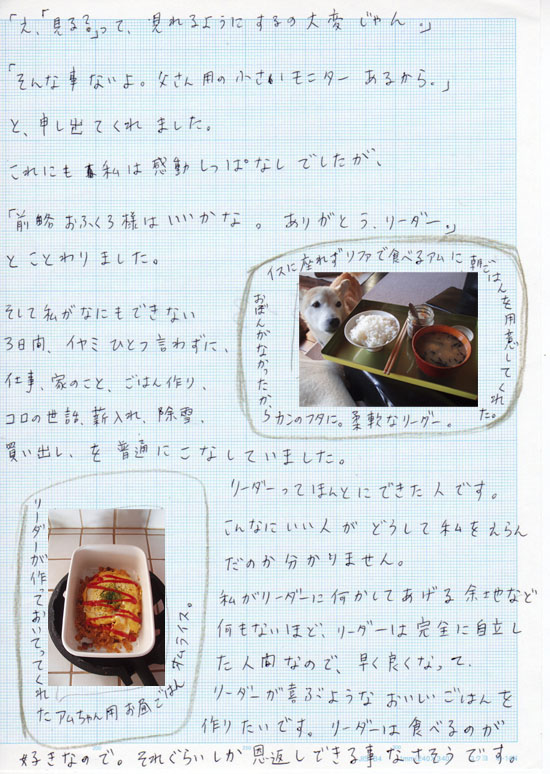 「え、「見る？」って、見れるようにするの大変じゃん。」
「そんな事ないよ。父さん用の小さいモニターあるから。」
と、申し出てくれました。
これにも私は感動しっぱなしでしたが、
「前略おふくろ様はいいかな。ありがとう、リーダー。」
とことわりました。
イスに座れずソファで食べるアムに
朝ごはんを用意してくれた。
おぼんがなかったから
カンのフタに。柔軟なリーダー。
そして私がなにもできない
3日間、イヤミひとつ言わずに、
仕事、家のこと、ごはん作り、
コロの世話、薪入れ、除雪、
買い出し、を普通にこなしていました。
リーダーってほんとにできた人です。
こんなにいい人がどうして私をえらん
だのか分かりません。
私がリーダーに何かしてあげる余地など
何もないほど、リーダーは完全に自立し
た人間なので、早く良くなって、
リーダーが喜ぶようなおいしいごはんを
作りたいです。リーダーは食べるのが
好きなので。それぐらいしか恩返しできる事なさそうです。
リーダーが作っておいてってくれた
アムちゃん用お昼ごはん
オムライス。